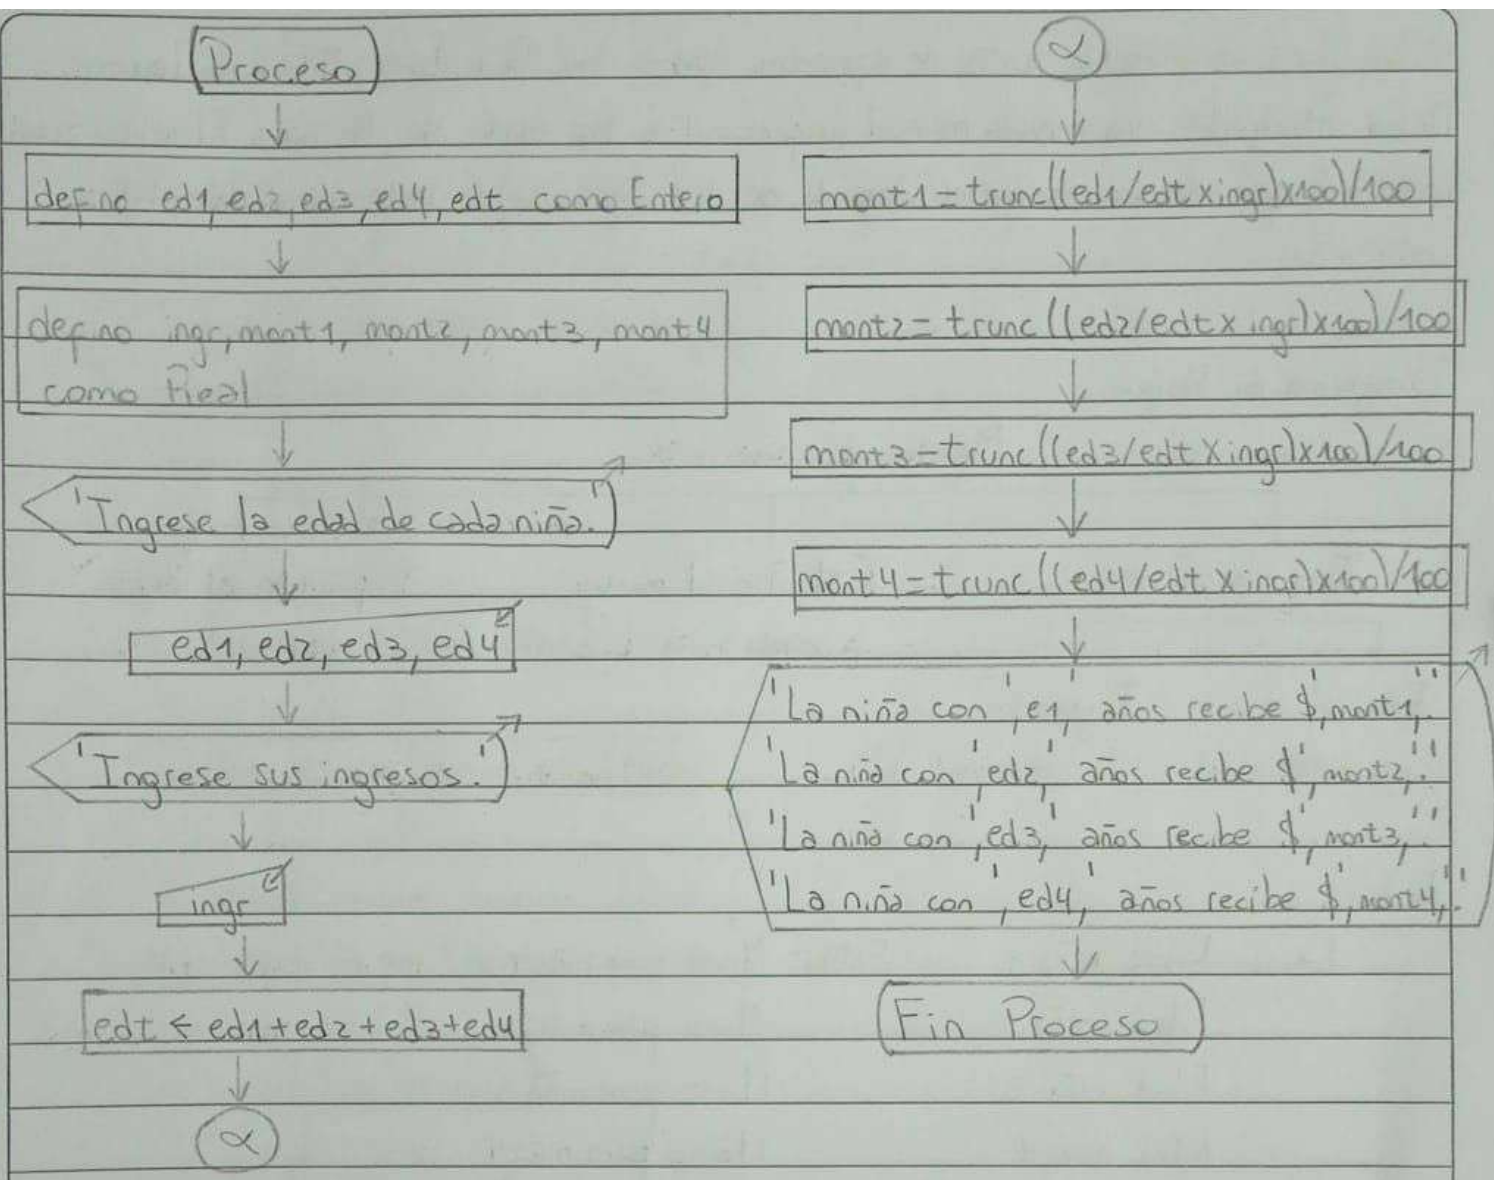 Proceso
defino ed1, ed2, ed3, ed4, edt como Entero
defino ingr, mont1, mont2, mont3, mont4
como Real
'Ingrese la edad de cada niña.'
ed1, ed2, ed3, ed4
'Ingrese sus ingresos.'
ingr
edt ← ed1+ed2+ed3+ed4
α
α
mont1=trunc((ed1/edt x ingr)x100)/100
mont2=trunc((ed2/edt x ingr)x100)/100
mont3=trunc((ed3/edt x ingr)x100)/100
mont4=trunc((ed4/edt x ingr)x100)/100
'La niña con', e1, 'años recibe $', mont1, '.'
'La niña con', ed2, 'años recibe $', mont2, '.'
'La niña con', ed3, 'años recibe $', mont3, '.'
'La niña con', ed4, 'años recibe $', mont4, '.'
Fin Proceso